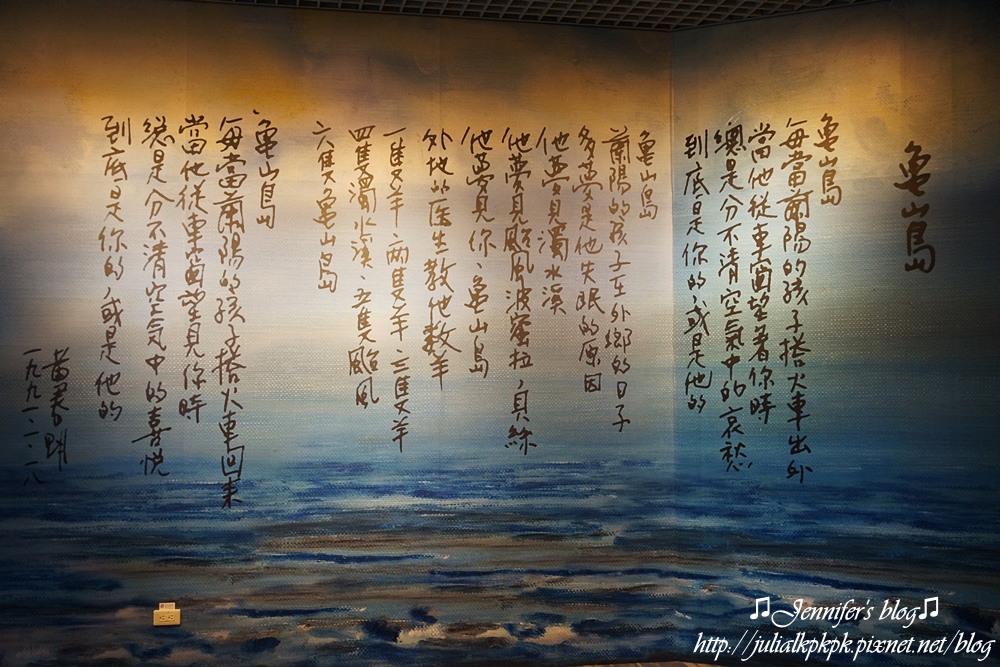 龜山島
龜山島
每當蘭陽的孩子搭火車出外
當他從車窗望著你時
總是分不清空氣中的哀愁
到底是你的,或是他的
龜山島
蘭陽的孩子在外鄉的日子
多夢是他失眠的原因
他夢見濁水溪
他夢見颱風波蜜拉,貝絲
他夢見你、龜山島
外地的医生教他數羊
一隻羊、兩隻羊、三隻羊
四隻濁水溪、五隻颱風
六隻龜山島
龜山島
每當蘭陽的孩子搭火車回來
當他從車窗望見你時
總是分不清空氣中的喜悦
到底是你的,或是他的
黃春明
一九九一.二.一八
♫Jennifer's blog♫
http://julialkpkpk.pixnet.net/blog